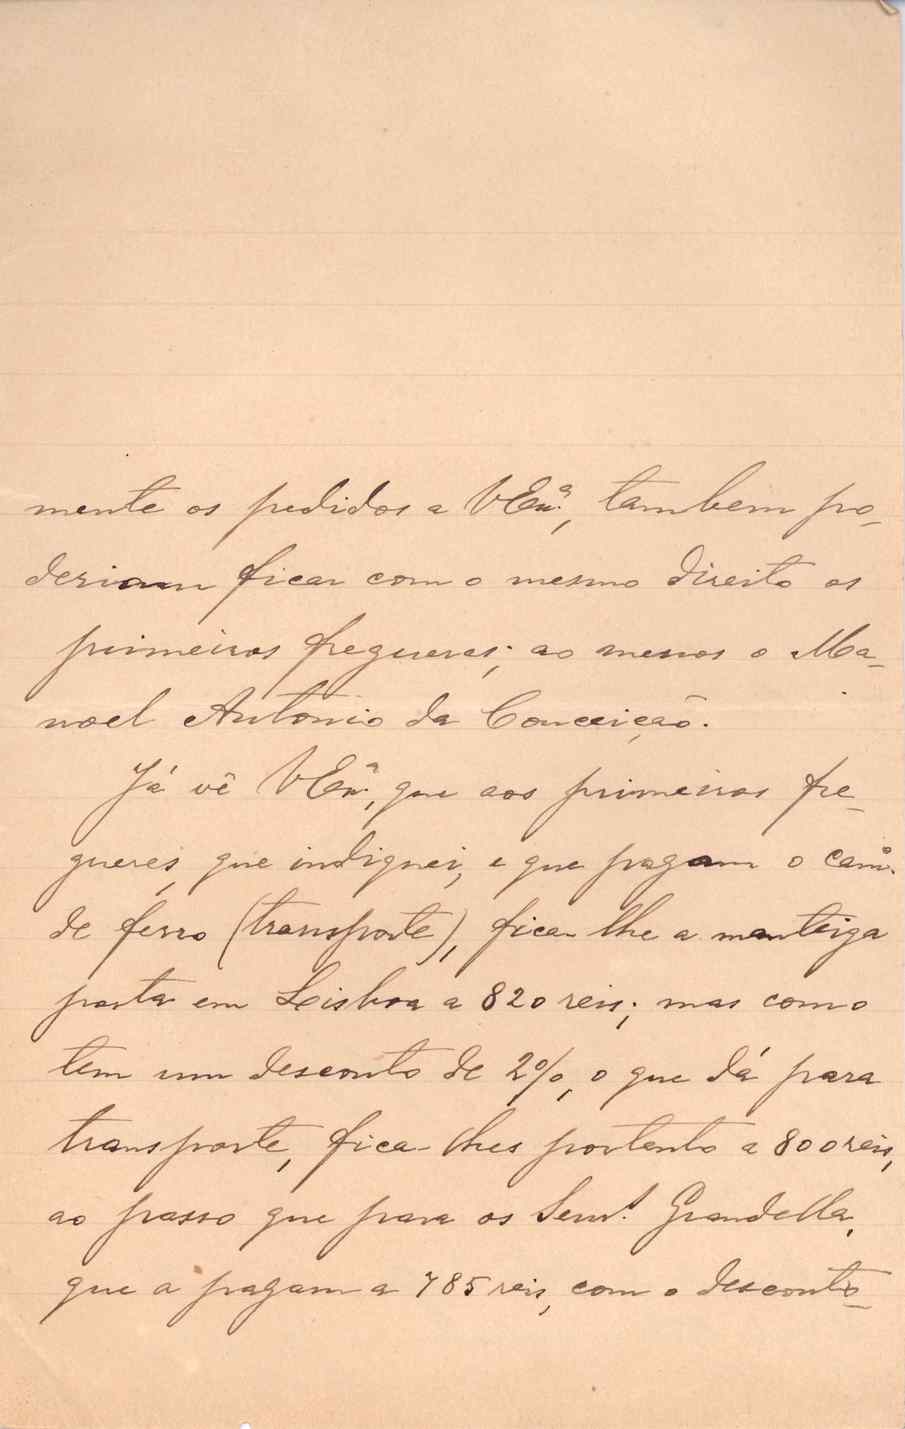 mente os pedidos a VExª, tambem po-
deriam ficar com o mesmo direito os
primeiros freguezes; ao menos o Ma-
noel Antonio da Conceição.
Já vê VExª, que aos primeiros fre-
guezes, que indiquei, e que pagam o camº
de ferro (transporte), fica-lhe a manteiga
posta em Lisboa a 820 reis; mas como
tem um desconto de 2%, o que dá para
transporte, fica-lhes portanto a 800 reis,
ao passo que para os Senrs Grandella,
que a pagam a 785 reis, com o desconto